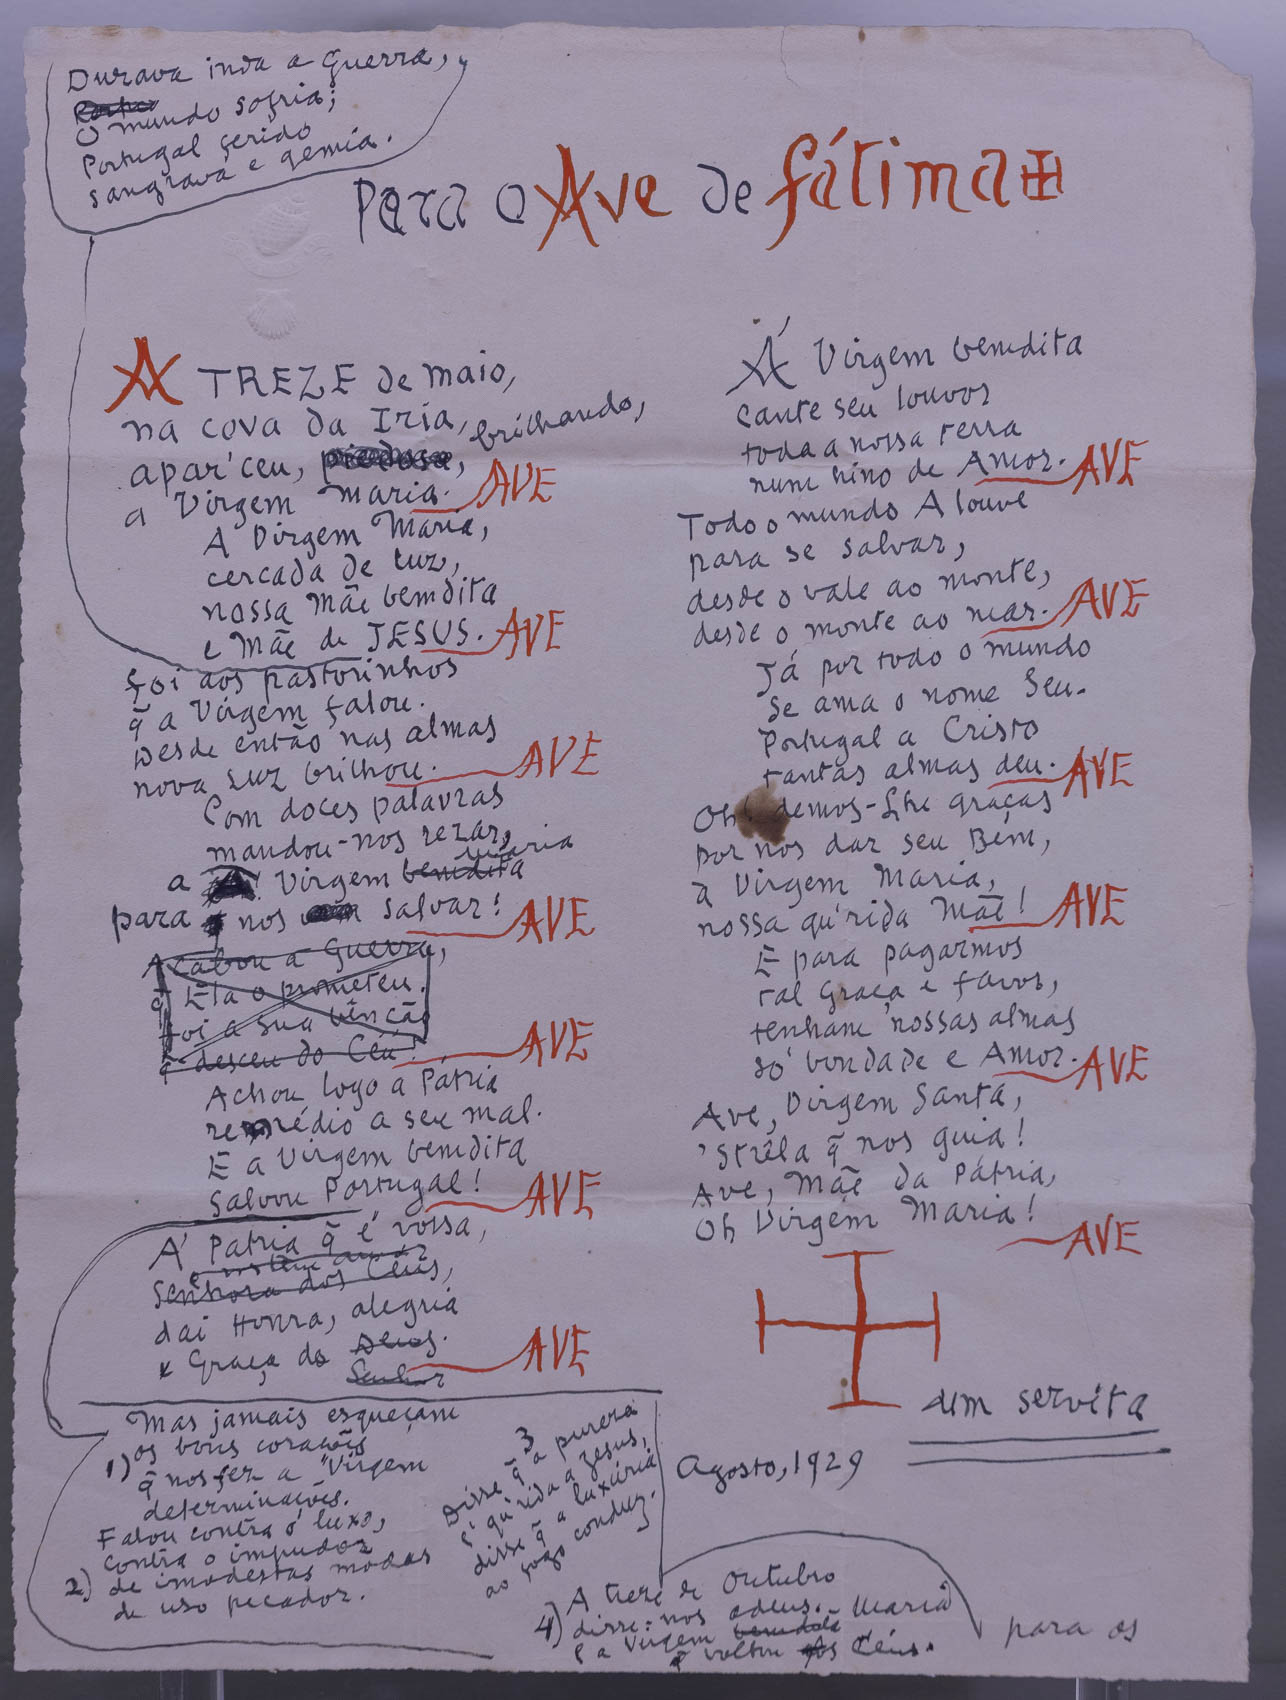 Durava inda a Guerra,
O mundo sofria;
Portugal ferido
sangrava e gemia.
Para o Ave de fátima
A TREZE de maio,
na cova da Iria,
brilhando,
apar'ceu, piedosa,
a Virgem maria. AVE
A Virgem Maria,
cercada de luz,
nossa Mãe bemdita
e Mãe de JESUS. AVE
foi aos pastorinhos
q̃ a Virgem falou.
Desde então nas almas
nova Luz brilhou. AVE
Com doces palavras
mandou-nos rezar,
a Virgem bemdita maria
para nos salvar! AVE
Acabou a Guerra,
q̃ Ela o prometeu.
foi a sua bênção
q̃ desceu do Céu! AVE
Achou logo a Pátria
remédio a seu mal.
E a Virgem bemdita
Salvou Portugal! AVE
A' Patria q̃ é vossa,
Senhora dos Céus,
dai Honra, alegria
e Graça do Deus. AVE
Senhor
Mas jamais esqueçam
1) os bons corações
q̃ nos fez a Virgem
determinações.
Falou contra o luxo,
contra o impudor
2) de imodestas modas
de uso pecador.
3
Disse q̃ a pureza
é qu'rida a Jesus,
disse q̃ a luxúria
ao fogo conduz.
4) A treze de Outubro
disse-nos adeus.
e a Virgem bemdita Maria
voltou aos Céus.
para os
Á Virgem bemdita
cante seu louvor
toda a nossa terra
num hino de Amor. AVE
Todo o mundo A louve
para se salvar,
desde o vale ao monte,
desde o monte ao mar. AVE
Já por todo o mundo
se ama o nome Seu.
Portugal a Cristo
tantas almas deu. AVE
Oh! demos-Lhe graças
por nos dar seu Bem,
a Virgem Maria,
nossa qu'rida Mãe! AVE
E para pagarmos
tal Graça e favor,
tenham nossas almas
só bondade e Amor. AVE
Ave, Virgem Santa,
'Strêla q̃ nos guia!
Ave, Mãe da Pátria,
Oh Virgem Maria! AVE
um servita
Agosto, 1929